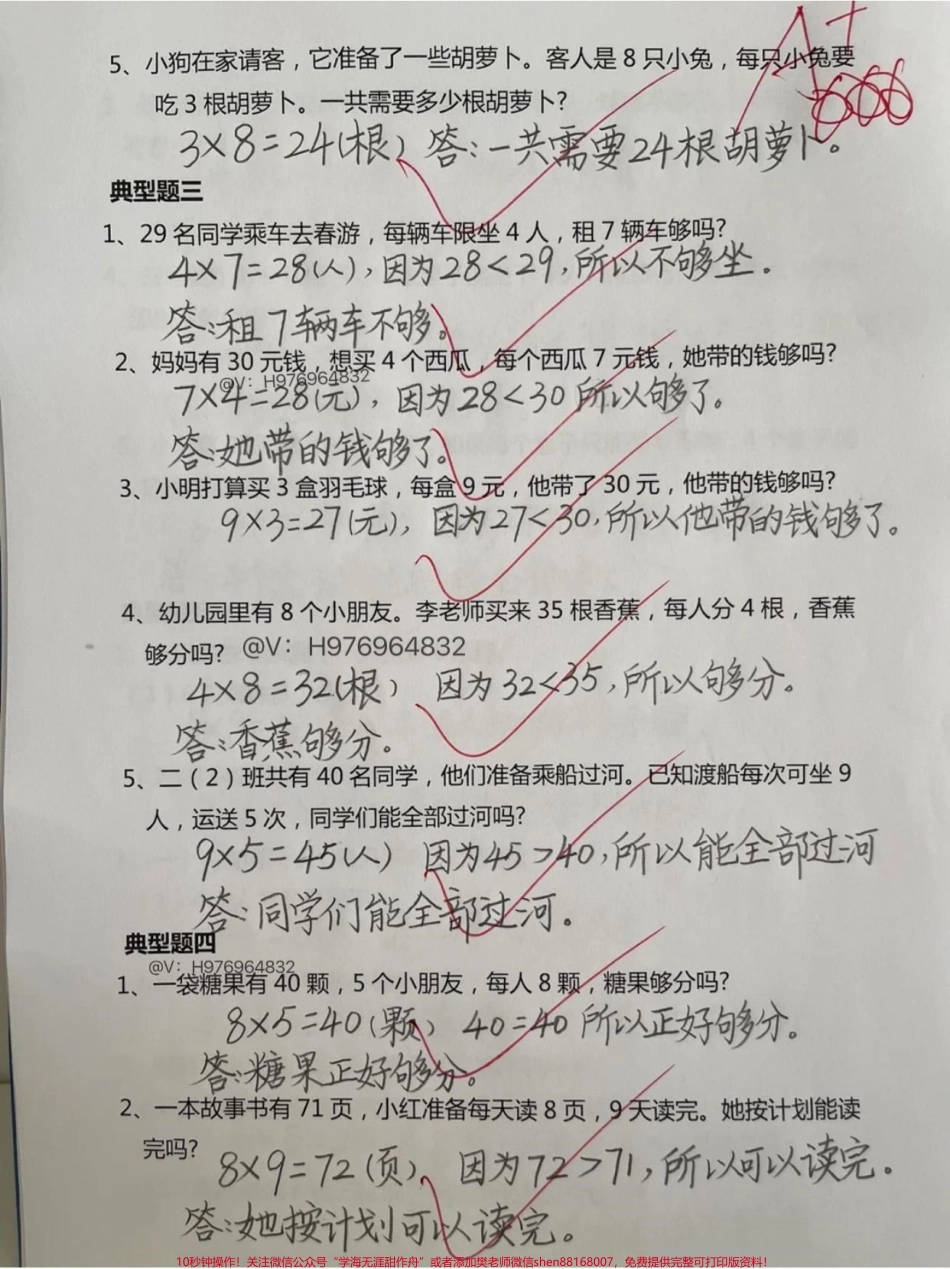 5、小狗在家请客，它准备了一些胡萝卜。客人是 8 只小兔，每只小兔要
吃 3 根胡萝卜。一共需要多少根胡萝卜?
3×8=24(根) 答:一共需要24根胡萝卜。
A+
666
典型题三
1、29 名同学乘车去春游，每辆车限坐 4 人，租 7 辆车够吗?
4×7=28(人),因为28<29,所以不够坐。
答:租7辆车不够。
2、妈妈有 30 元钱，想买 4 个西瓜，每个西瓜 7 元钱，她带的钱够吗?
@V：H976964832
7×4=28(元),因为28<30所以够了。
答:她带的钱够了。
3、小明打算买 3 盒羽毛球，每盒 9 元，他带了 30 元，他带的钱够吗?
9×3=27(元),因为27<30,所以他带的钱够了。
4、幼儿园里有 8 个小朋友。李老师买来 35 根香蕉，每人分 4 根，香蕉
够分吗? @V：H976964832
4×8=32(根) 因为32<35,所以够分。
答:香蕉够分。
5、二（2）班共有 40 名同学，他们准备乘船过河。已知渡船每次可坐 9
人，运送 5 次，同学们能全部过河吗?
9×5=45(人) 因为45>40,所以能全部过河
答:同学们能全部过河。
典型题四
@V：H976964832
1、一袋糖果有 40 颗，5 个小朋友，每人 8 颗，糖果够分吗?
8×5=40(颗) 40=40 所以正好够分。
答:糖果正好够分。
2、一本故事书有 71 页，小红准备每天读 8 页，9 天读完。她按计划能读
完吗?
8×9=72(页), 因为72>71,所以可以读完。
答:她按计划可以读完。
10秒钟操作！关注微信公众号“学海无涯甜作舟”或者添加樊老师微信shen88168007，免费提供完整可打印版资料！